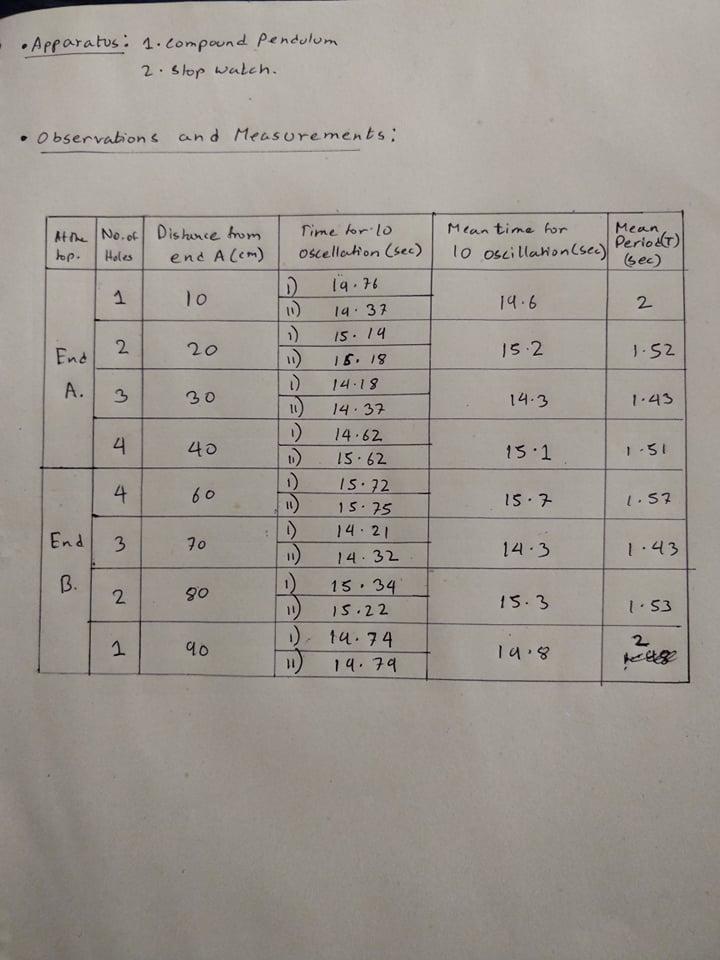 • Apparatus: 1. Compound Pendulum
2. Stop watch.
• Observations and Measurements:
At the top. | No. of Holes | Distance from end A (cm) | Time for 10 oscellation (sec) | Mean time for 10 oscillation (sec) | Mean Period (T) (sec)
End A. | 1 | 10 | i) 19.76 | 19.6 | 2
ii) 19.37
2 | 20 | i) 15.19 | 15.2 | 1.52
ii) 15.18
3 | 30 | i) 14.18 | 14.3 | 1.43
ii) 14.37
4 | 40 | i) 14.62 | 15.1 | 1.51
ii) 15.62
End B. | 4 | 60 | i) 15.72 | 15.7 | 1.57
ii) 15.75
3 | 70 | i) 14.21 | 14.3 | 1.43
ii) 14.32
2 | 80 | i) 15.34 | 15.3 | 1.53
ii) 15.22
1 | 90 | i) 19.74 | 19.8 | 2
ii) 19.79